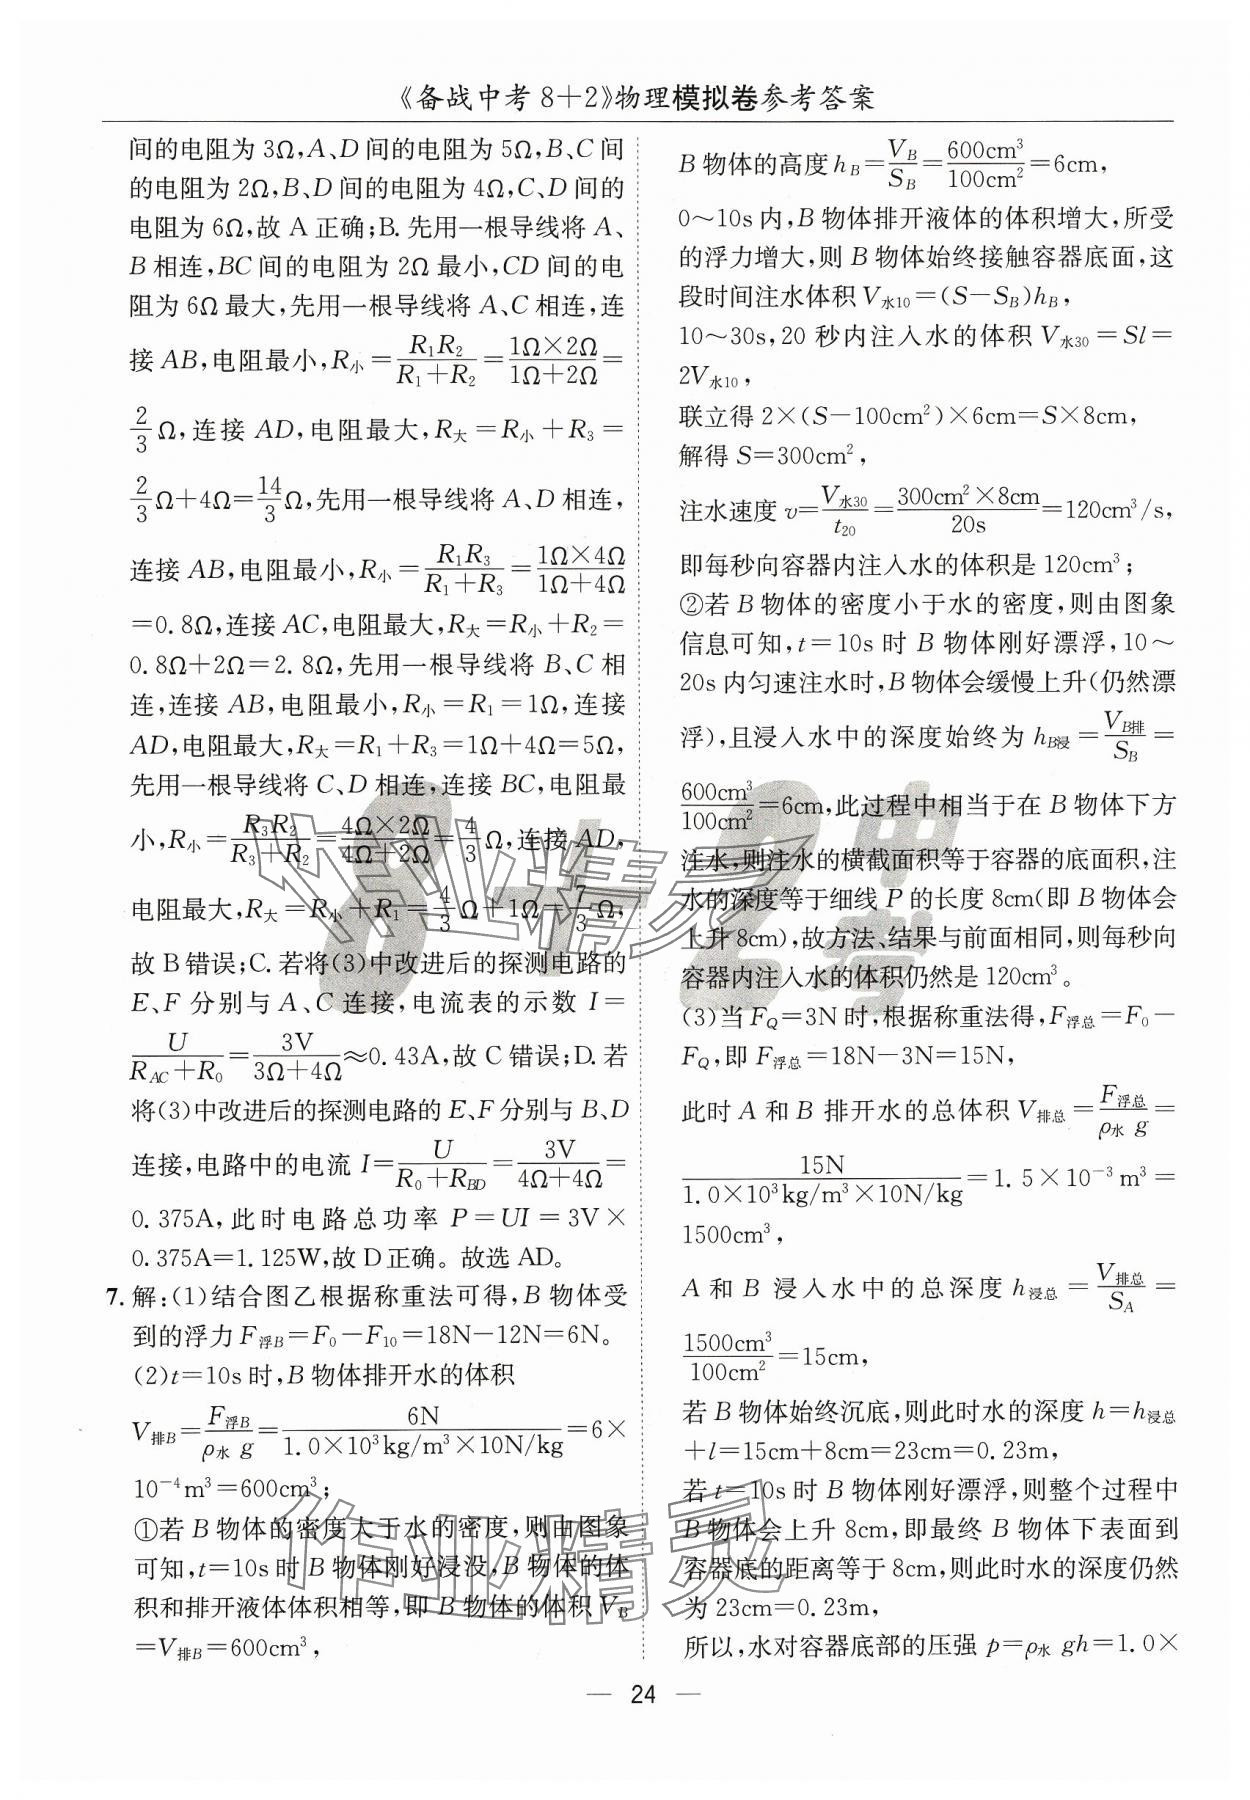 《备战中考8+2》物理模拟卷参考答案
间的电阻为3Ω,A、D间的电阻为5Ω,B、C间
的电阻为2Ω,B、D间的电阻为4Ω,C、D间的
电阻为6Ω,故A正确;B.先用一根导线将A、
B相连,BC间的电阻为2Ω最小,CD间的电
阻为6Ω最大,先用一根导线将A、C相连,连
接AB,电阻最小,R小=R₁R₂/(R₁+R₂)=(1Ω×2Ω)/(1Ω+2Ω)=
2/3Ω,连接AD,电阻最大,R大=R小+R₃=
2/3Ω+4Ω=14/3Ω,先用一根导线将A、D相连,
连接AB,电阻最小,R小=R₁R₃/(R₁+R₃)=(1Ω×4Ω)/(1Ω+4Ω)
=0.8Ω,连接AC,电阻最大,R大=R小+R₂=
0.8Ω+2Ω=2.8Ω,先用一根导线将B、C相
连,连接AB,电阻最小,R小=R₁=1Ω,连接
AD,电阻最大,R大=R₁+R₃=1Ω+4Ω=5Ω,
先用一根导线将C、D相连,连接BC,电阻最
小,R小=R₃R₂/(R₃+R₂)=(4Ω×2Ω)/(4Ω+2Ω)=4/3Ω,连接AD,
电阻最大,R大=R小+R₁=4/3Ω+1Ω=7/3Ω,
故B错误;C.若将(3)中改进后的探测电路的
E、F分别与A、C连接,电流表的示数I=
U/(R_AC+R₀)=3V/(3Ω+4Ω)≈0.43A,故C错误;D.若
将(3)中改进后的探测电路的E、F分别与B、D
连接,电路中的电流I=U/(R₀+R_BD)=3V/(4Ω+4Ω)=
0.375A,此时电路总功率P=UI=3V×
0.375A=1.125W,故D正确。故选AD。
7.解:(1)结合图乙根据称重法可得,B物体受
到的浮力F浮B=F₀-F₁₀=18N-12N=6N。
(2)t=10s时,B物体排开水的体积
V排B=F浮B/(ρ水 g)=6N/(1.0×10³kg/m³×10N/kg)=6×
10⁻⁴m³=600cm³;
①若B物体的密度大于水的密度,则由图象
可知,t=10s时B物体刚好浸没,B物体的体
积和排开液体体积相等,即B物体的体积V_B
=V排B=600cm³,
B物体的高度h_B=V_B/S_B=600cm³/100cm²=6cm,
0~10s内,B物体排开液体的体积增大,所受
的浮力增大,则B物体始终接触容器底面,这
段时间注水体积V水10=(S-S_B)h_B,
10~30s,20秒内注入水的体积V水30=Sl=
2V水10,
联立得2×(S-100cm²)×6cm=S×8cm,
解得S=300cm²,
注水速度v=V水30/t₂₀=(300cm²×8cm)/20s=120cm³/s,
即每秒向容器内注入水的体积是120cm³;
②若B物体的密度小于水的密度,则由图象
信息可知,t=10s时B物体刚好漂浮,10~
20s内匀速注水时,B物体会缓慢上升(仍然漂
浮),且浸入水中的深度始终为h_B浸=V_B排/S_B=
600cm³/100cm²=6cm,此过程中相当于在B物体下方
注水,则注水的横截面积等于容器的底面积,注
水的深度等于细线P的长度8cm(即B物体会
上升8cm),故方法、结果与前面相同,则每秒向
容器内注入水的体积仍然是120cm³。
(3)当F_Q=3N时,根据称重法得,F浮总=F₀-
F_Q,即F浮总=18N-3N=15N,
此时A和B排开水的总体积V排总=F浮总/(ρ水 g)=
15N/(1.0×10³kg/m³×10N/kg)=1.5×10⁻³m³=
1500cm³,
A和B浸入水中的总深度h浸总=V排总/S_A=
1500cm³/100cm²=15cm,
若B物体始终沉底,则此时水的深度h=h浸总
+l=15cm+8cm=23cm=0.23m,
若t=10s时B物体刚好漂浮,则整个过程中
B物体会上升8cm,即最终B物体下表面到
容器底的距离等于8cm,则此时水的深度仍然
为23cm=0.23m,
所以,水对容器底部的压强p=ρ水 gh=1.0×
— 24 —
8+2
中考
作业精灵
作业精灵